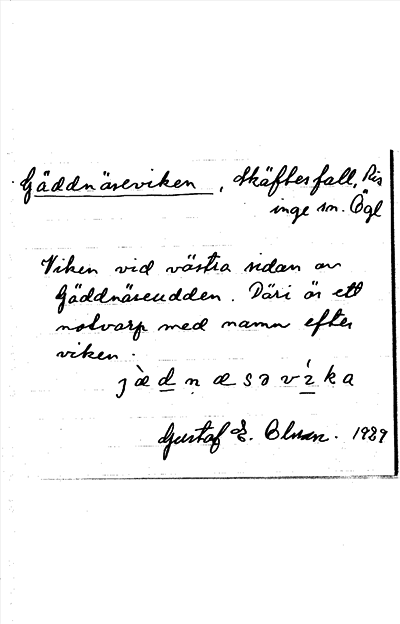 Gäddnäseviken, Skäftesfall, Ris
inge sn. Ögl
Viken vid västra sidan av
Gäddnäseudden. Däri är ett
notvarp med namn efter
viken.
Gustaf E. Olman. 1929